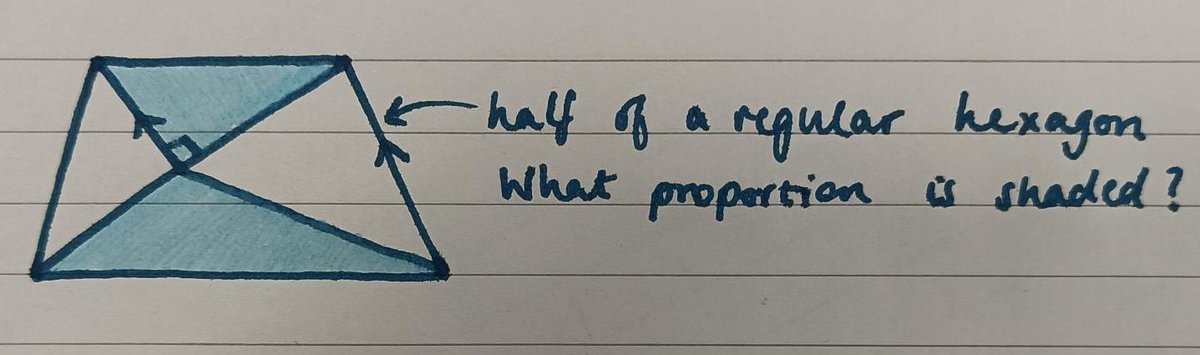 half of a regular hexagon
What proportion is shaded?